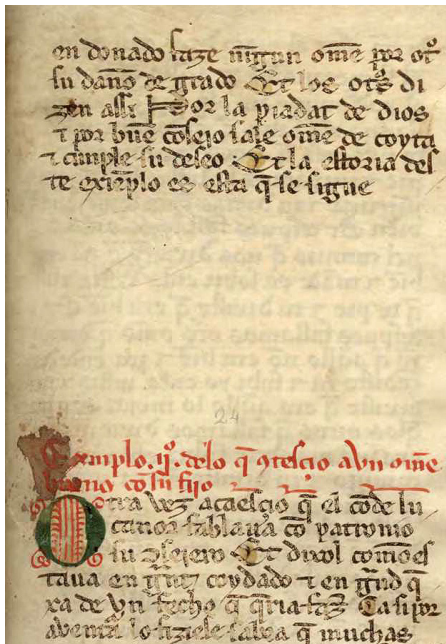 en donado faze ningun ome por otº
su daño de grado Et los otºs di
zen assi Por la piadat de dios
τ por buē cōsejo sale ome de coyta
τ cunple su deseo Et la estoria des
te exienplo es esta q̄ se sigue
24
Exmplo .ijº. delo q̄ ꝯtesçio a vn ome
bueno cō su fijo
Otra vez acaesçio q̄ el cōde lu
canor fablaua cō patronio
su ꝯsejero Et dixol comō es
taua en grāt coydado τ en grād q̄
xa de vn fecho q̄ q̄ria faz̄ Ca si por
auentª lo fiziese sabia q̄ muchas